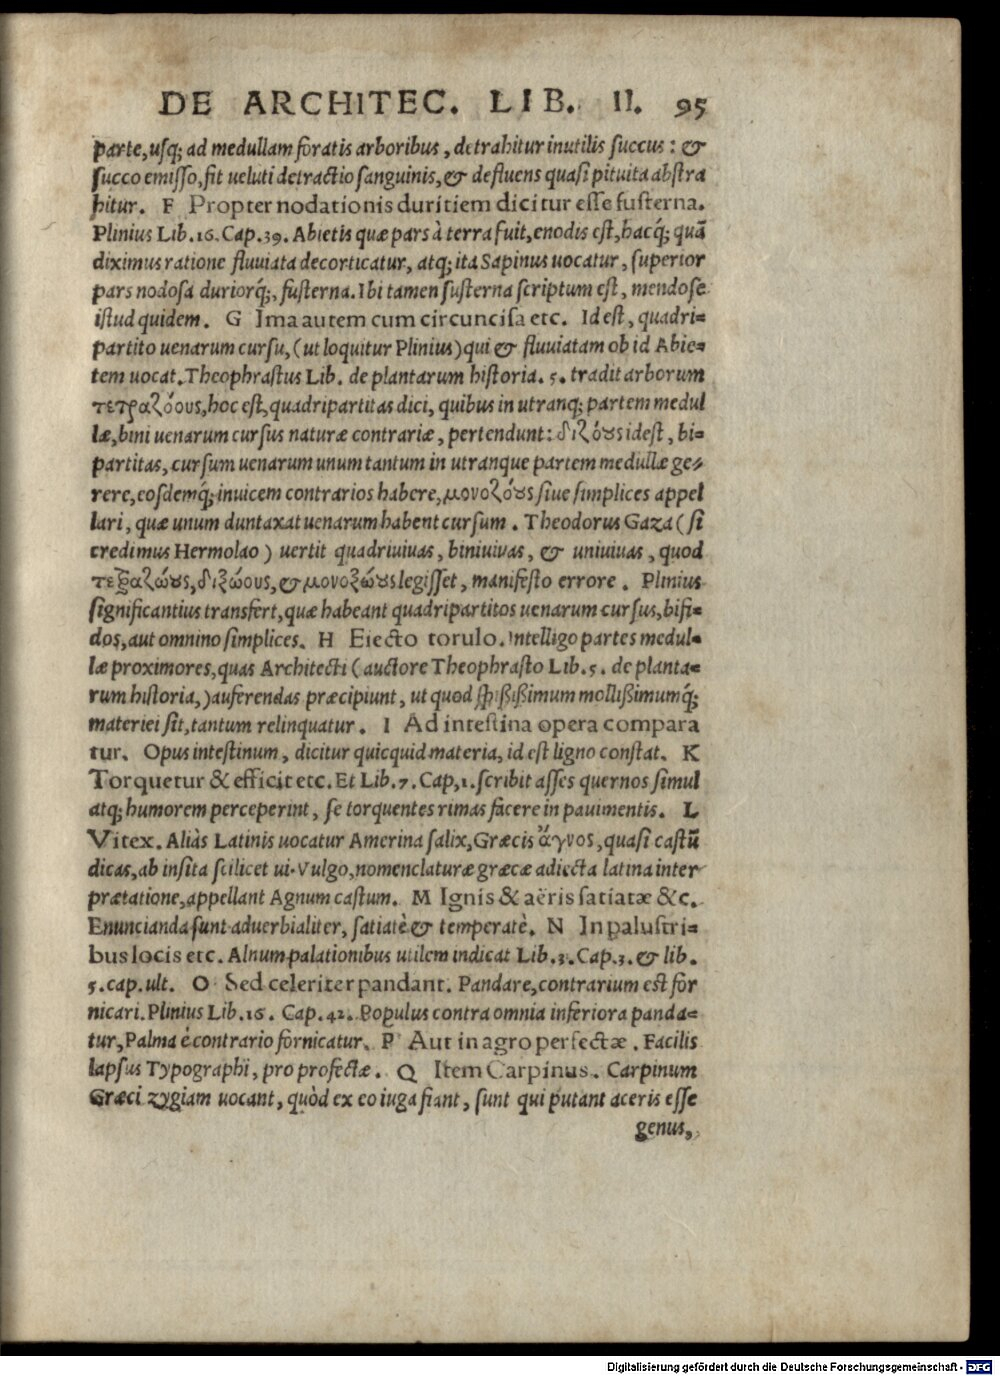 DE ARCHITEC. LIB. II. 95
parte, usq; ad medullam foratis arboribus, detrahitur inutilis succus: &
succo emisso, fit ueluti detractio sanguinis, & defluens quasi pituita abstra
hitur. F Propter nodationis duritiem dicitur esse fusterna.
Plinius Lib. 16. Cap. 39. Abietis quæ pars à terra fuit, enodis est, hacq́; quã
diximus ratione fluuiata decorticatur, atq; ita Sapinus uocatur, superior
pars nodosa duriorq́;, fusterna. Ibi tamen susterna scriptum est, mendose
istud quidem. G Ima autem cum circuncisa etc. Id est, quadri=
partito uenarum cursu, (ut loquitur Plinius) qui & fluuiatam ob id Abie=
tem uocat. Theophrastus Lib. de plantarum historia. 5. tradit arborum
τετραζόους, hoc est, quadripartitas dici, quibus in utranq; partem medul
læ, bini uenarum cursus naturæ contrariæ, pertendunt: διζόους idest, bi=
partitas, cursum uenarum unum tantum in utranque partem medullæ ge=
rere, eosdemq́; inuicem contrarios habere, μονοζόους siue simplices appel
lari, quæ unum duntaxat uenarum habent cursum. Theodorus Gaza (si
credimus Hermolao) uertit quadriuiuas, biniuiuas, & uniuiuas, quod
τετραζώους, διζώους, & μονοζώους legisset, manifesto errore. Plinius
significantius transfert, quæ habeant quadripartitos uenarum cursus, bifi=
dos, aut omnino simplices. H Eiecto torulo. Intelligo partes medul=
læ proximores, quas Architecti (auctore Theophrasto Lib. 5. de planta=
rum historia,) auferendas præcipiunt, ut quod spißißimum mollißimumq́;
materiei sit, tantum relinquatur. I Ad intestina opera compara
tur. Opus intestinum, dicitur quicquid materia, id est ligno constat. K
Torquetur & efficit etc. Et Lib. 7. Cap, 1. scribit asses quernos simul
atq; humorem perceperint, se torquentes rimas facere in pauimentis. L
Vitex. Aliàs Latinis uocatur Amerina salix, Græcis ἄγνος, quasi castũ
dicas, ab insita scilicet ui. Vulgo, nomenclaturæ græcæ adiecta latina inter
prætatione, appellant Agnum castum. M Ignis & aëris satiatæ &c.
Enuncianda sunt aduerbialiter, satiatè & temperatè. N In palustri=
bus locis etc. Alnum palationibus utilem indicat Lib. 3. Cap. 3. & lib.
5. cap. ult. O Sed celeriter pandant. Pandare, contrarium est for
nicari. Plinius Lib. 16. Cap. 42. Populus contra omnia inferiora panda=
tur, Palma è contrario fornicatur. P Aut in agro perfectæ. Facilis
lapsus Typographi, pro profectæ. Q Item Carpinus. Carpinum
Græci zygiam uocant, quòd ex eo iuga fiant, sunt qui putant aceris esse
genus,
Digitalisierung gefördert durch die Deutsche Forschungsgemeinschaft - DFG